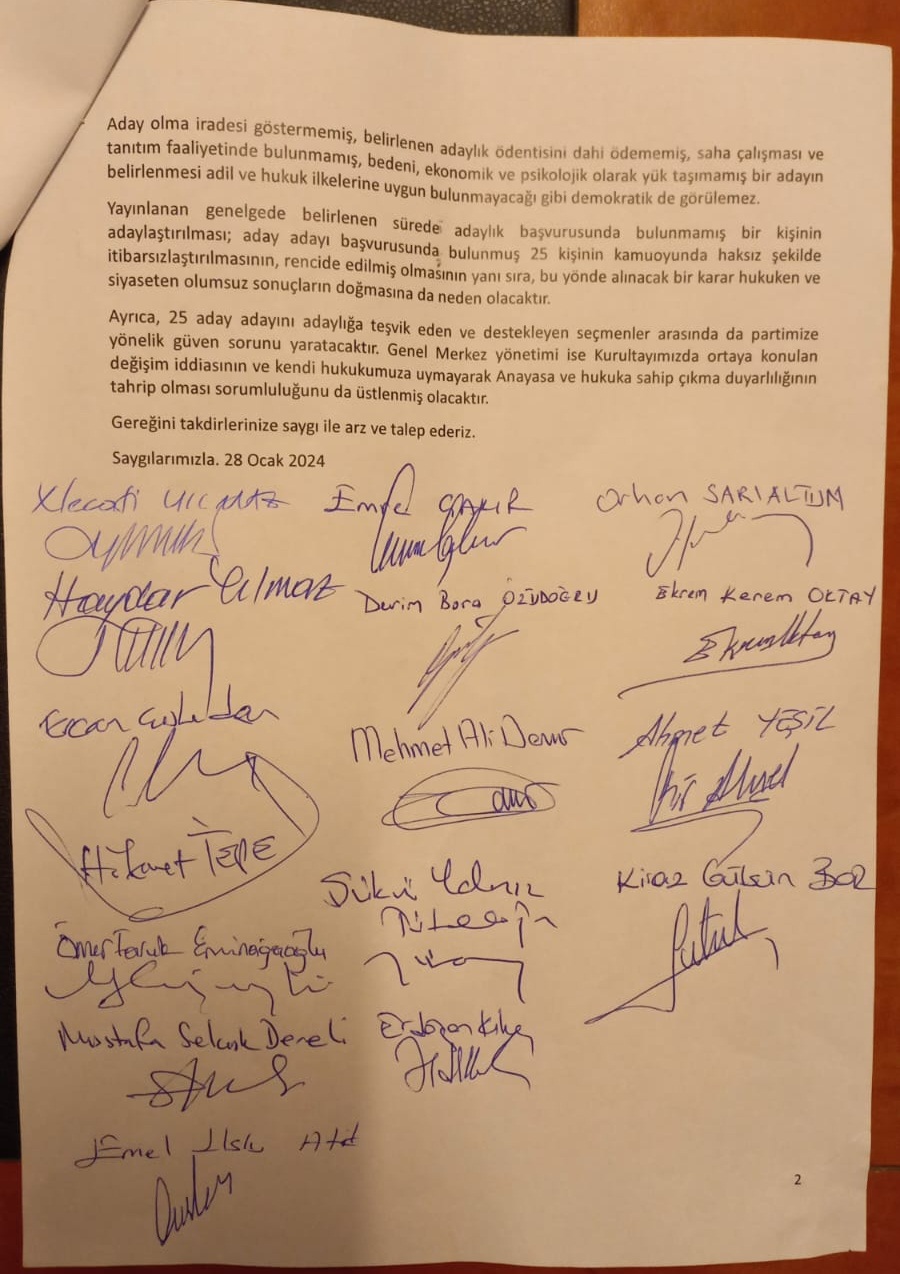 Aday olma iradesi göstermemiş, belirlenen adaylık ödentisini dahi ödememiş, saha çalışması ve
tanıtım faaliyetinde bulunmamış, bedeni, ekonomik ve psikolojik olarak yük taşımamış bir adayın
belirlenmesi adil ve hukuk ilkelerine uygun bulunmayacağı gibi demokratik de görülemez.
Yayınlanan genelgede belirlenen sürede adaylık başvurusunda bulunmamış bir kişinin
adaylaştırılması; aday adayı başvurusunda bulunmuş 25 kişinin kamuoyunda haksız şekilde
itibarsızlaştırılmasının, rencide edilmiş olmasının yanı sıra, bu yönde alınacak bir karar hukuken ve
siyaseten olumsuz sonuçların doğmasına da neden olacaktır.
Ayrıca, 25 aday adayını adaylığa teşvik eden ve destekleyen seçmenler arasında da partimize
yönelik güven sorunu yaratacaktır. Genel Merkez yönetimi ise Kurultayımızda ortaya konulan
değişim iddiasının ve kendi hukukumuza uymayarak Anayasa ve hukuka sahip çıkma duyarlılığının
tahrip olması sorumluluğunu da üstlenmiş olacaktır.
Gereğini takdirlerinize saygı ile arz ve talep ederiz.
Saygılarımızla. 28 Ocak 2024
Necati Orhan SARIALTUN
Haydar Yılmaz Devrim Bora ÖZÜDOĞRU Ekrem Kerem OKTAY
Ercan Mehmet Ali Demir Ahmet YEŞİL
Hikmet TEPE Kiraz Gülsün BOZ
Ömer Faruk Eminağaoğlu
Mustafa Selçuk Dereli Erdoğan Kılıç
Emel
2